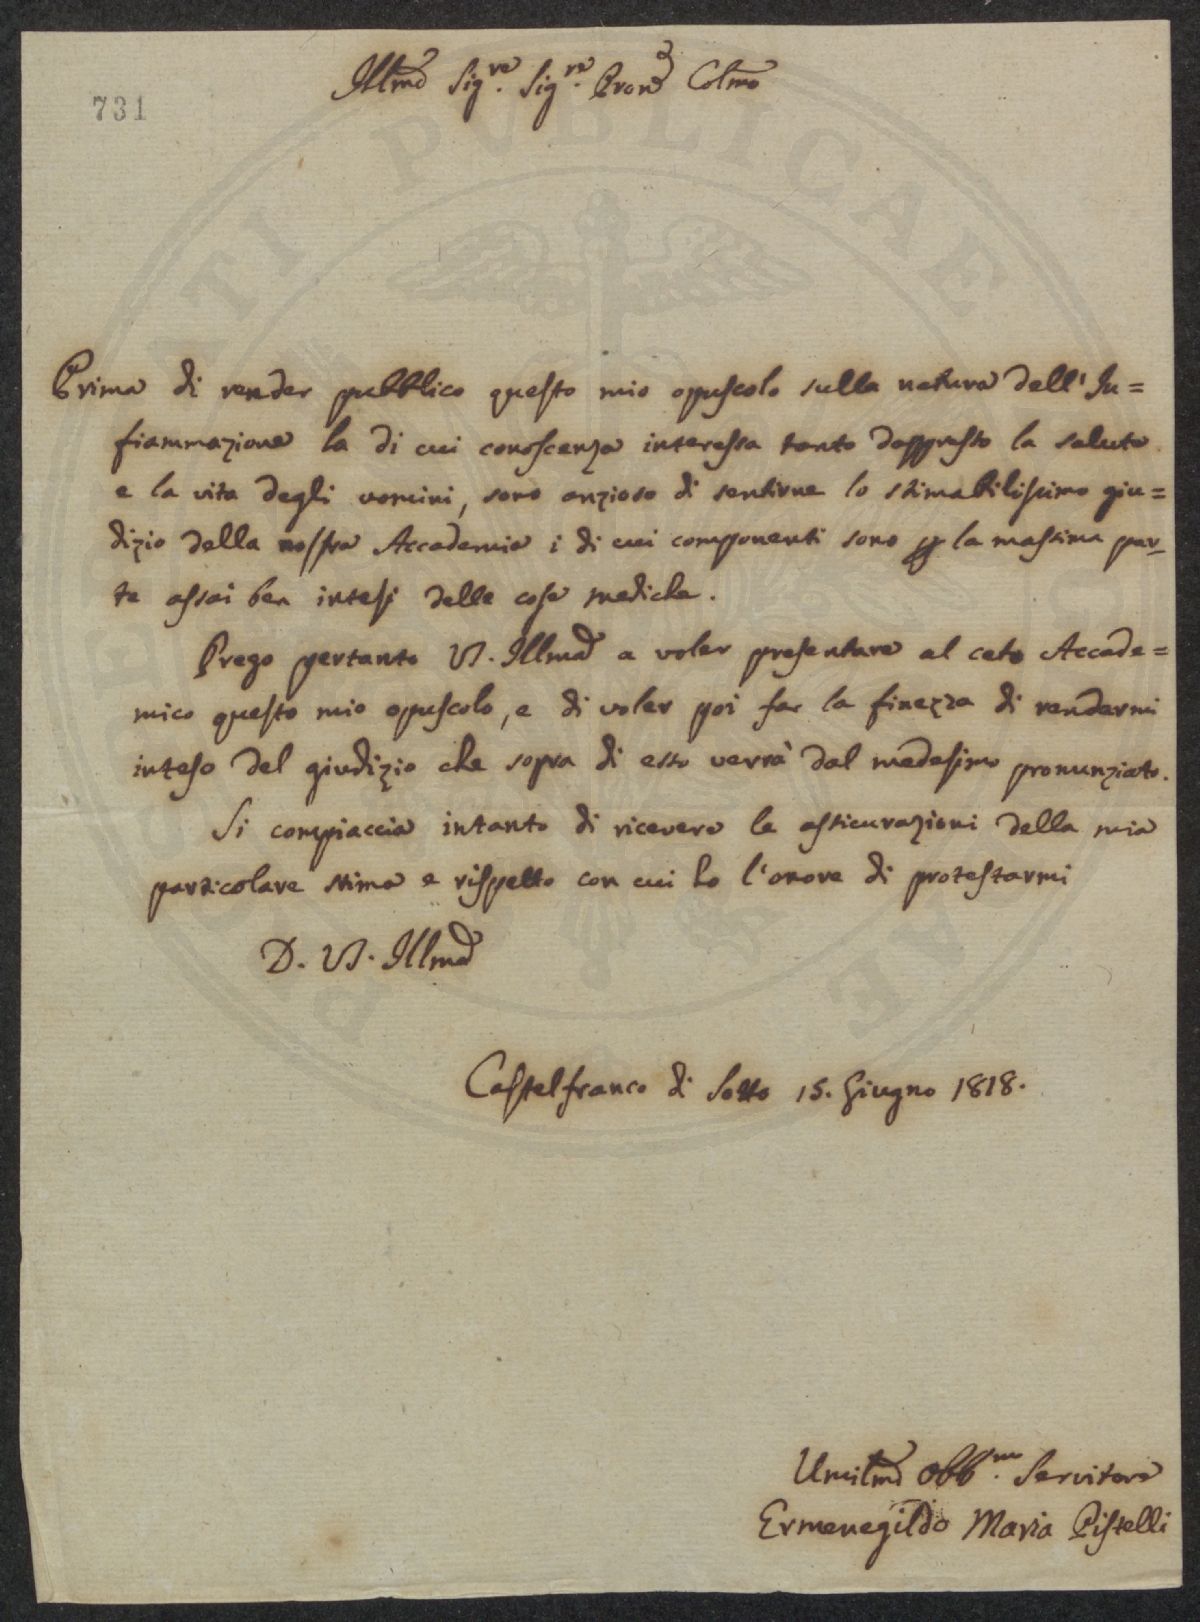 731
Illmo Sigre. Sigre. Pron Colmo
Prima di render pubblico questo mio opuscolo sulla natura dell' In=
fiammazione la di cui conoscenza interessa tanto dappresso la salute
e la vita degli uomini, sono anzioso di sentirne lo stimabilissimo giu=
dizio della nostra Accademia i di cui componenti sono p la massima par=
te assai ben intesi delle cose mediche.
Prego pertanto VS. Illma a voler presentare al ceto Accade=
mico questo mio opuscolo, e di voler poi far la finezza di rendermi
inteso del giudizio che sopra di esso verrà dal medesimo pronunziato.
Si compiaccia intanto di ricevere le assicurazioni della mia
particolare stima e rispetto con cui ho l'onore di protestarmi
D. VS. Illma
Castelfranco di Sotto 15. Giugno 1818.
Umilmo Obbmo. Servitore
Ermenegildo Maria Pistelli
PUBLICAE